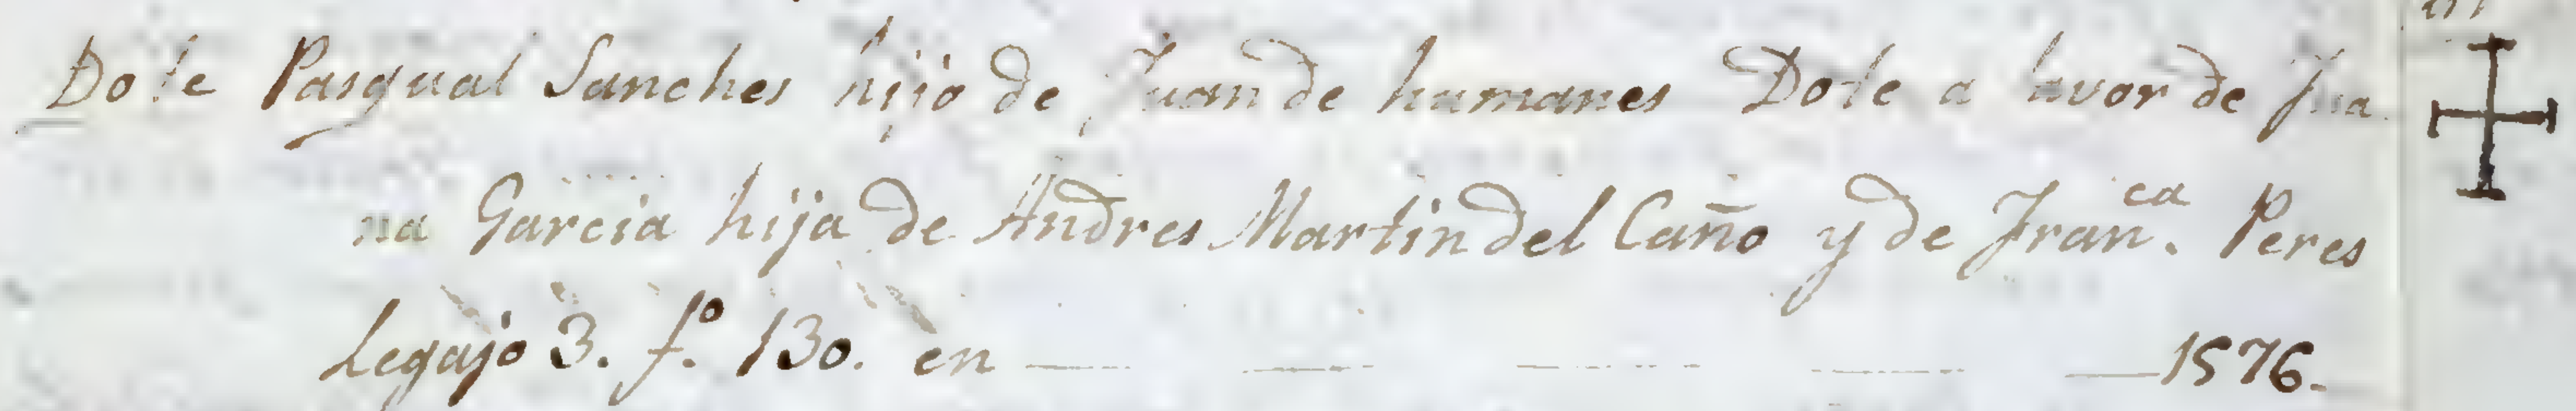 Dote Pasqual Sanches hijo de Juan de humanes Dote a favor de Jua
na Garcia hija de Andres Martin del Caño y de Fran.ca Peres
Legajo 3. fº 130. en 1576.